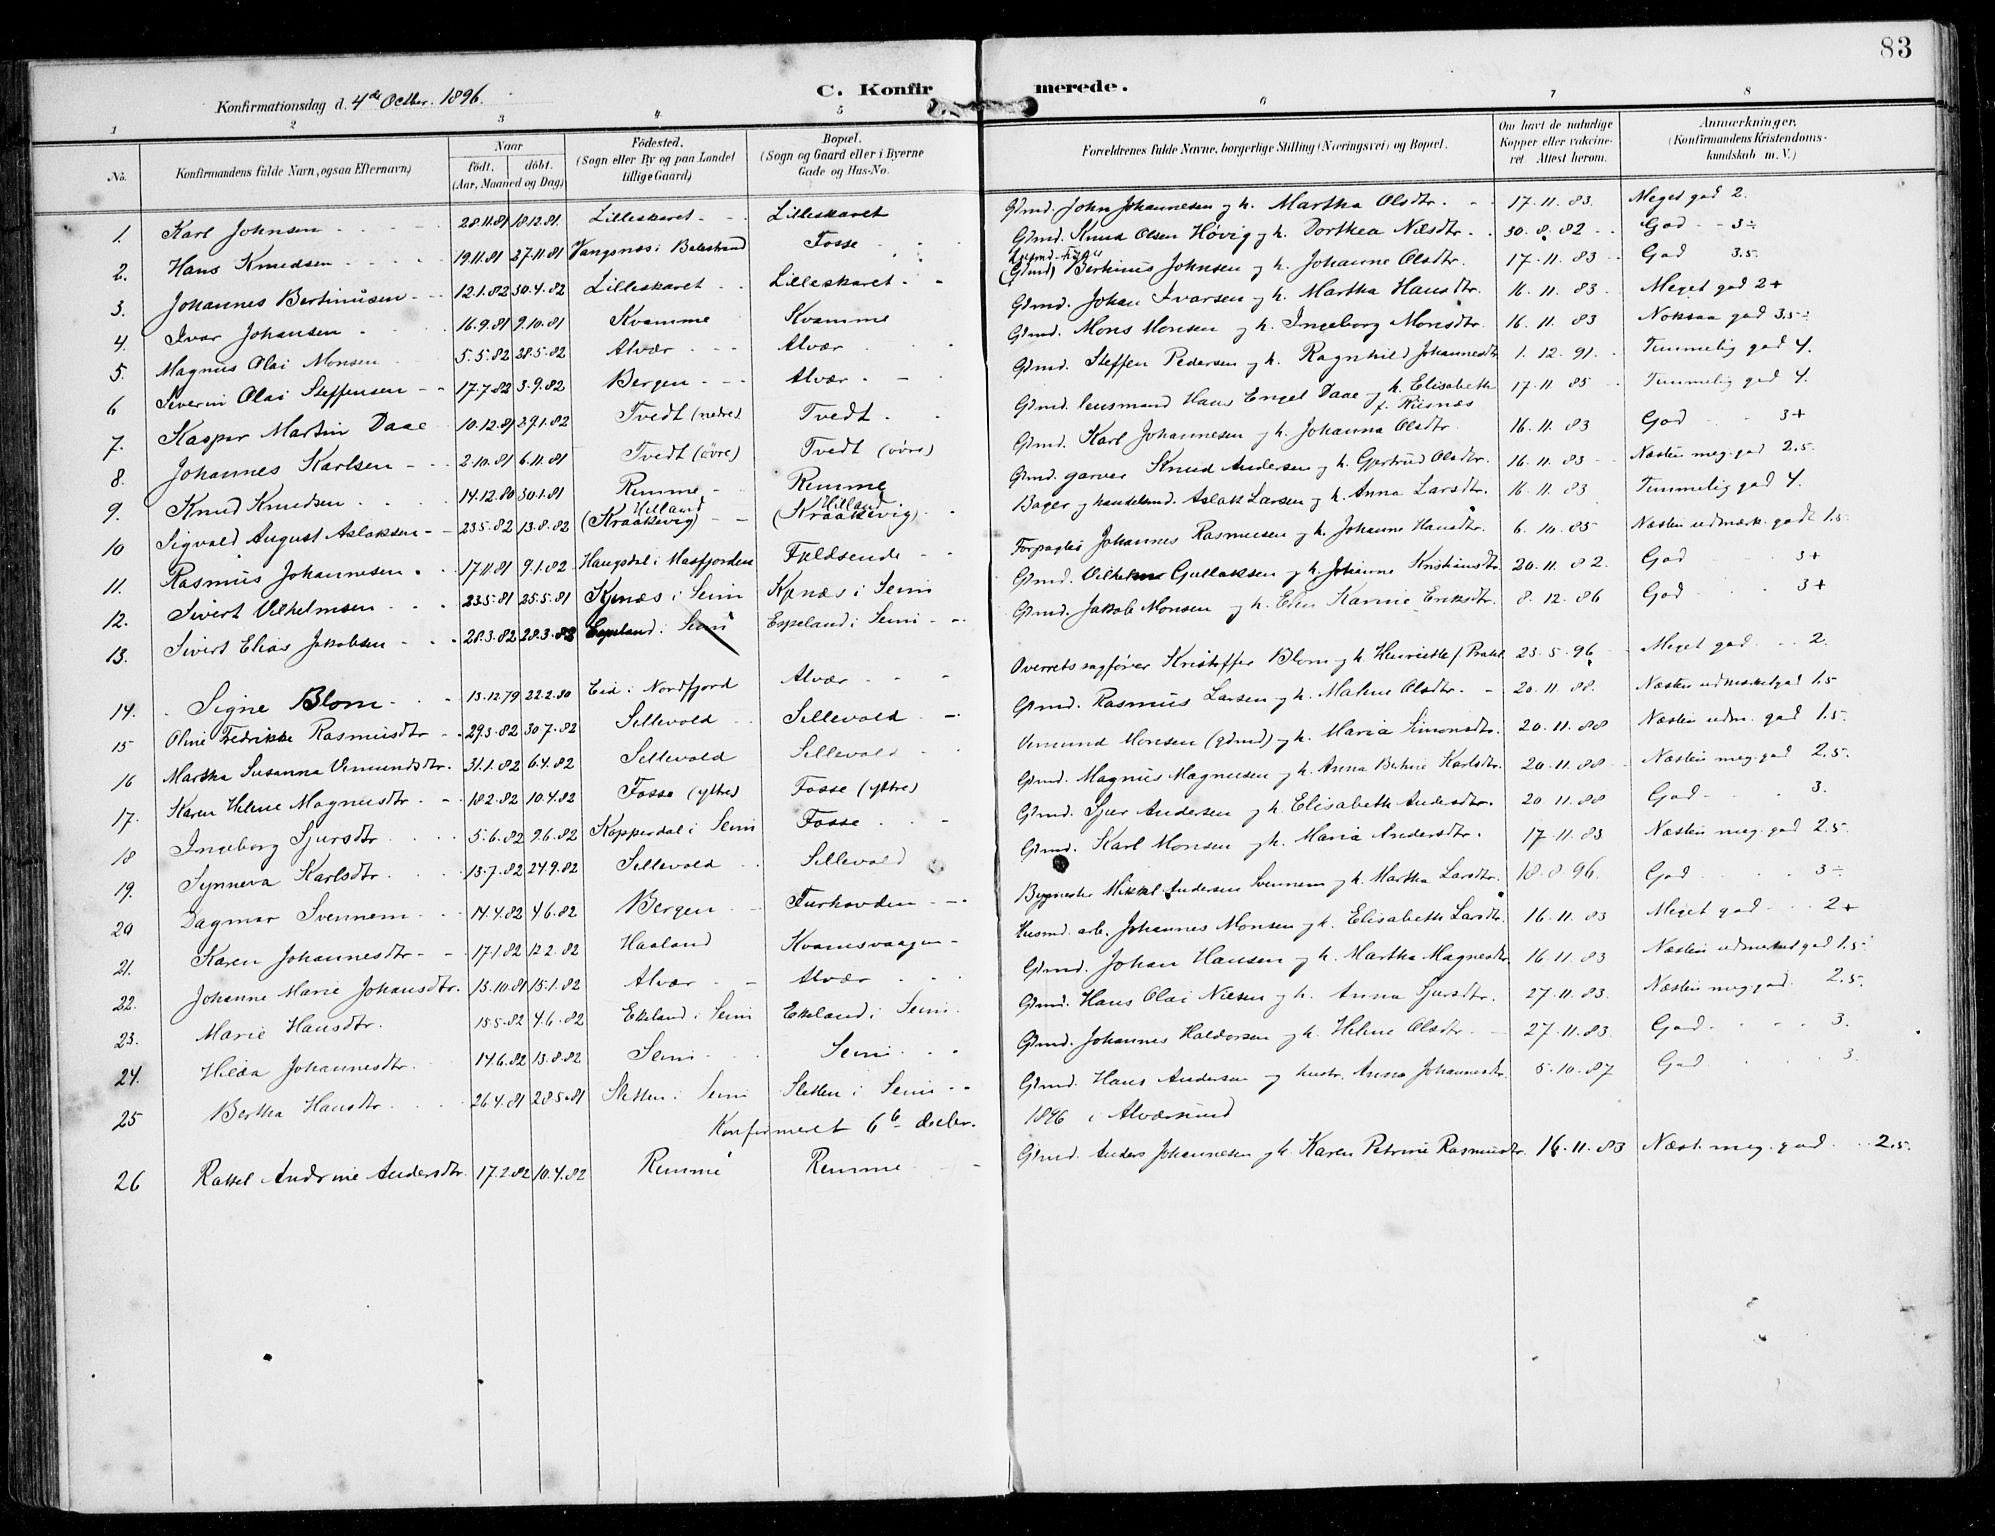 83
Konfirmationsdag d. 4de Octbr. 1896.
C. Konfirmerede.
1 2 3 4 5 6 7 8
No.
Konfirmandens fulde Navn, ogsaa Efternavn)
Naar
födt. döbt.
(Aar, Maaned og Dag)
Födested.
(Sogn eller By og paa Landet
tillige Gaard)
Bopæl.
(Sogn og Gaard eller i Byerne
Gade og Hus-No.
Forældrenes fulde Navne, borgerlige Stilling (Næringsvei) og Bopæl.
Om havt de naturlige
Kopper eller vakcine-
ret. Attest herom.
Anmærkninger.
(Konfirmandens Kristendoms-
kundskab m. V.)
1. Karl Johnsen 28.11.81 18.12.81 Lilleskaret Lilleskaret Gmd. John Johannesen g h. Martha Olsdtr. 17.11.83. Meget god 2.
2. Hans Knudsen 19.11.81 27.11.81 Vangsnes i Balestrand Fosse Gmd. Knud Olsen Hovig g h. Dorthea Nilsdtr. 30.8.82 God 3÷
3. Johannes Bertinusen 12.1.82 30.4.82 Lilleskaret Lilleskaret (Gmd) Bertinus Johnsen g h. Johanne Olsdtr. 17.11.83 God 3.5.
4. Ivar Johansen 16.9.81 9.10.81 Kvamme Kvamme Gmd. Johan Ivarsen g h. Martha Hansdtr. 16.11.83. Meget god 2+
5. Magnus Olai Monsen 5.5.82 28.5.82 Alvær Alvær Gmd. Mons Monsen g h. Ingeborg Monsdtr. 16.11.83 Noksaa god 3.5÷
6 Severin Olai Steffensen 17.7.82 3.9.82 Bergen Alvær Gmd. Steffen Pedersen g h. Ragnhild Johannesdtr 1.12.91. Temmelig god 4.
7. Kasper Martin Daae 10.12.81 29.1.82 Tvedt (nedre) Tvedt Gmd. lensmand Hans Engel Daae g h. Elisabeth f. Risnæs 17.11.85 Temmelig god 4.
8. Johannes Karlsen 2.10.81 6.11.81 Tvedt (övre) Tvedt (övre) Gmd. Karl Johannesen g h. Johanna Olsdtr. 16.11.83 God 3+
9. Knud Knudsen 14.12.80 30.1.81 Remme Remme Gmd. garver Knud Andersen g h. Gjertrud Olsdtr. 16.11.83 Næsten meg. god 2.5.
10 Sigvald August Aslaksen 23.5.82 13.8.82 Hilland (Kraakevig) Hilland (Kraakevig) Bager g handelsmd. Aslak Larsen g h. Anna Larsdtr. 16.11.83 Temmelig god 4.
11. Rasmus Johannesen 17.11.81 9.1.82 Haugsdal i Masfjorden Fuldsende Forpagter Johannes Rasmusen g h. Johanne Hansdtr. 6.10.85 Næsten udmærk. godt 1.5.
12. Sivert Vilhelmsen 23.5.81 25.5.81 Kjnæs i Seim Kjnæs i Seim Gmd. Vilhelm Gullaksen g h. Johanne Kristiansdtr 20.11.82. God 3+
13. Sivert Elias Jakobsen 28.3.82 28.3.82 Espeland i Seim Espeland i Seim Gmd. Jakob Monsen g h. Elen Karine Eriksdtr. 8.12.86 God 3+
14. Signe Blom 13.12.79 22.2.80 Eid i Nordfjord Alvær Overretssagförer Kristoffer Blom g h Henriette f Prahl 23.5.96 Meget god 2.
15 Oline Fredrikke Rasmusdtr 29.3.82 30.7.82 Sellevold Sellevold Gmd. Rasmus Larsen g h. Malene Olsdtr. 20.11.88. Næsten udmerket god 1.5
16 Martha Susanna Vemundsdtr. 31.1.82 6.4.82 Sellevold Sellevold Vemund Monsen (gmd) g h. Maria Simonsdtr. 20.11.88 Næsten udm. god 1.5.
17. Karen Helene Magnusdtr 18.2.82 10.4.82 Fosse (yttre) Fosse (yttre) Gmd. Magnus Magnusen g h. Anna Bertine Karlsdtr. 20.11.88 Næsten meg. god 2.5.
18 Ingeborg Sjursdtr 5.6.82 9.6.82 Kopperdal i Seim Fosse Gmd. Sjur Andersen g h. Elisabeth Andersdtr. 20.11.88 God 3.
19. Synneva Karlsdtr. 13.7.82 24.9.82 Sellevold Sellevold Gmd. Karl Monsen g h. Maria Andersdtr. 17.11.83 Næsten meg. god 2.5.
20 Dagmar Svennem 14.4.82 4.6.82 Bergen Furhovden Bygmester Mikkel Andersen Svennem g h. Martha Larsdtr. 18.8.96. God 3÷
21. Karen Johannesdtr 17.1.82 12.2.82 Haaland Kvamsvaagen Husmd. arb. Johannes Monsen g h. Elisabeth Larsdtr. 16.11.83 Meget god 2+
22. Johanne Marie Johansdtr. 13.10.81 15.1.82 Alvær Alvær Gmd. Johan Hansen g h. Martha Magnesdtr 16.11.83 Næsten udmerket god 1.5.
23. Marie Hansdtr. 15.5.82 4.6.82 Ekeland i Seim Ekeland i Seim Gmd. Hans Olai Nilsen g h. Anna Sjursdtr. 27.11.83. Næsten meg. god. 2.5.
24. Hilda Johannesdtr. 14.6.82 13.8.82 Seim Seim Gmd. Johannes Haldorsen g h. Helene Olsdtr. 27.11.83. God 3.
25 Bertha Hansdtr. 26.4.81 28.5.81 Sletten i Seim Sletten i Seim Gmd. Hans Andersen g hustr. Anna Johannesdtr 5.10.87 God 3.
Konfirmeret 6te decbr. 1896 i Alværsund
26 Rakel Andrine Andersdtr. 17.2.82 10.4.82 Remme Remme Gmd. Anders Johannesen g h. Karen Petrine Rasmusdtr. 16.11.83 Næst. meg. god 2.5.